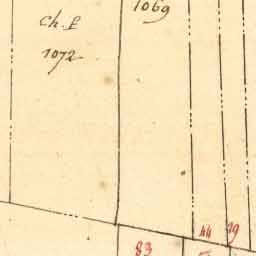 1069
Ch. f
1072
44 19
83